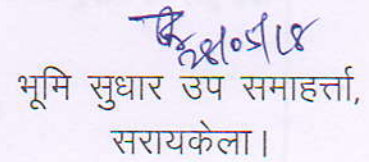 28/05/18
भूमि सुधार उप समाहर्त्ता,
सरायकेला।